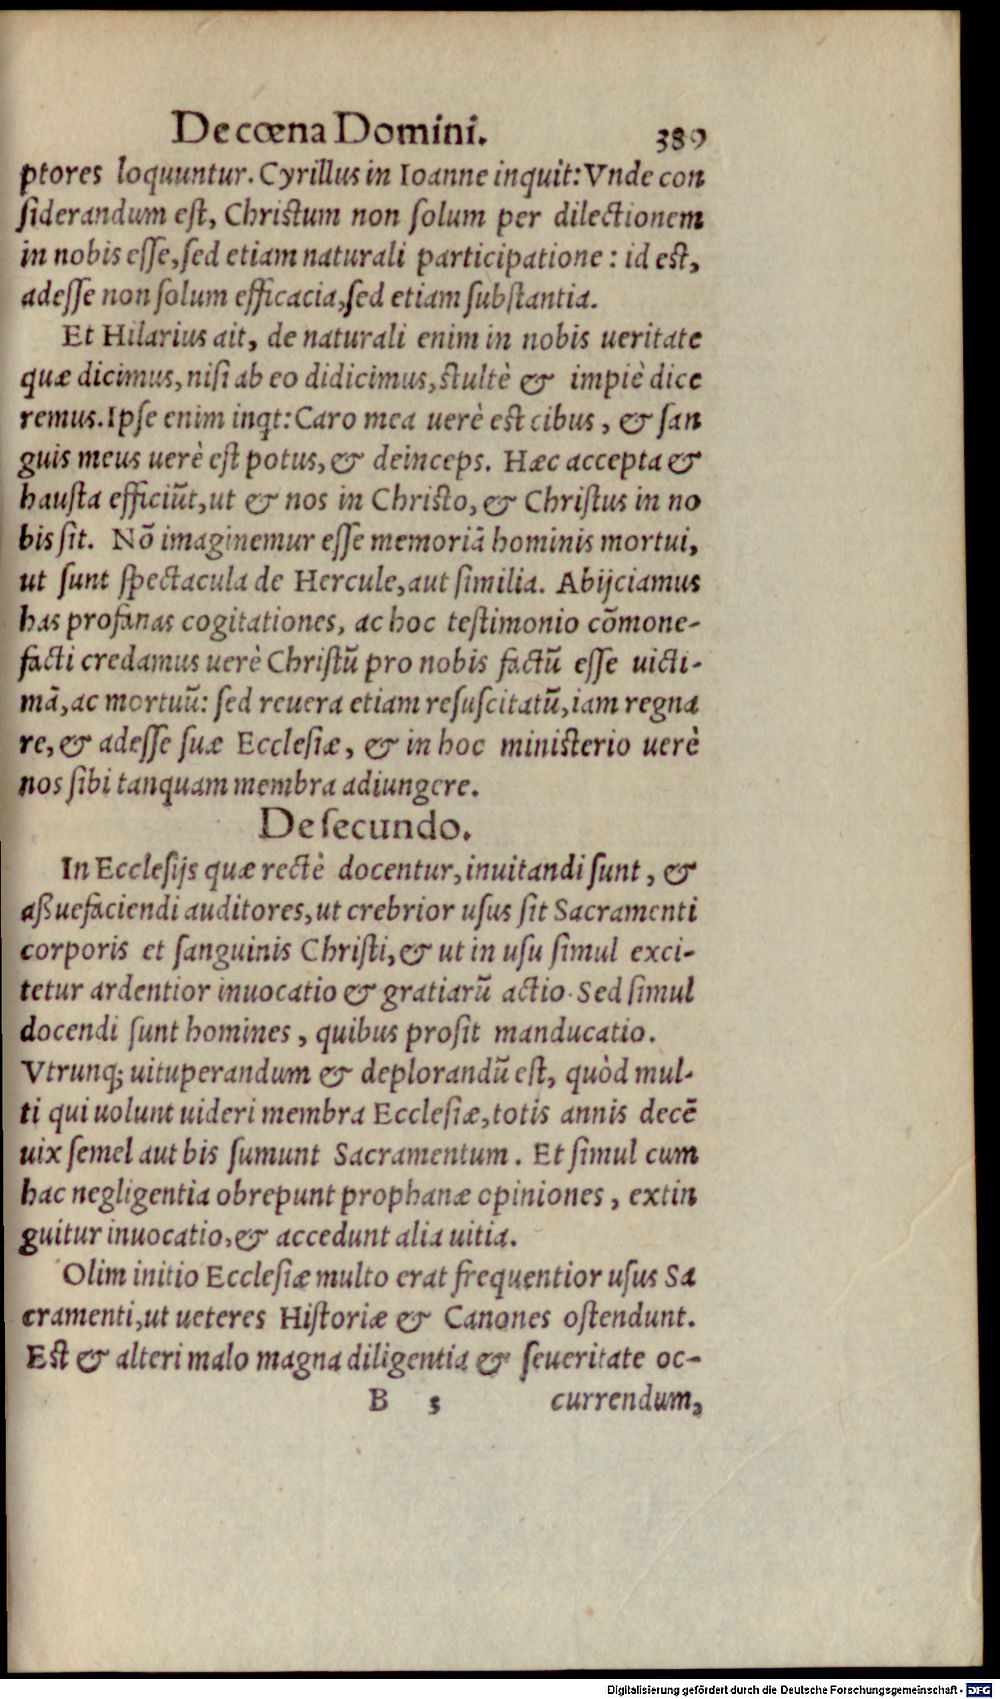 De cœna Domini. 389
ptores loquuntur. Cyrillus in Ioanne inquit: Vnde con
ſiderandum eſt, Chriſtum non ſolum per dilectionem
in nobis eſſe, ſed etiam naturali participatione : id eſt,
adeſſe non ſolum efficacia, ſed etiam ſubſtantia.
Et Hilarius ait, de naturali enim in nobis ueritate
quæ dicimus, niſi ab eo didicimus, ſtultè & impiè dice
remus. Ipſe enim inqt: Caro mea uerè eſt cibus, & ſan
guis meus uerè eſt potus, & deinceps. Hæc accepta &
hauſta efficiūt, ut & nos in Chriſto, & Chriſtus in no
bis ſit. Nō imaginemur eſſe memoriā hominis mortui,
ut ſunt ſpectacula de Hercule, aut ſimilia. Abijciamus
has profanas cogitationes, ac hoc teſtimonio cōmone-
facti credamus uerè Chriſtū pro nobis factū eſſe uicti-
mā, ac mortuū: ſed reuera etiam reſuſcitatū, iam regna
re, & adeſſe ſuæ Eccleſiæ, & in hoc miniſterio uerè
nos ſibi tanquam membra adiungere.
De ſecundo.
In Eccleſijs quæ rectè docentur, inuitandi ſunt, &
aßuefaciendi auditores, ut crebrior uſus ſit Sacramenti
corporis et ſanguinis Chriſti, & ut in uſu ſimul exci-
tetur ardentior inuocatio & gratiarū actio. Sed ſimul
docendi ſunt homines, quibus proſit manducatio.
Vtrunq; uituperandum & deplorandū eſt, quòd mul-
ti qui uolunt uideri membra Eccleſiæ, totis annis decē
uix ſemel aut bis ſumunt Sacramentum. Et ſimul cum
hac negligentia obrepunt prophanæ opiniones, extin
guitur inuocatio, & accedunt alia uitia.
Olim initio Eccleſiæ multo erat frequentior uſus Sa
cramenti, ut ueteres Hiſtoriæ & Canones oſtendunt.
Eſt & alteri malo magna diligentia & ſeueritate oc-
B 5 currendum,
Digitalisierung gefördert durch die Deutsche Forschungsgemeinschaft - DFG